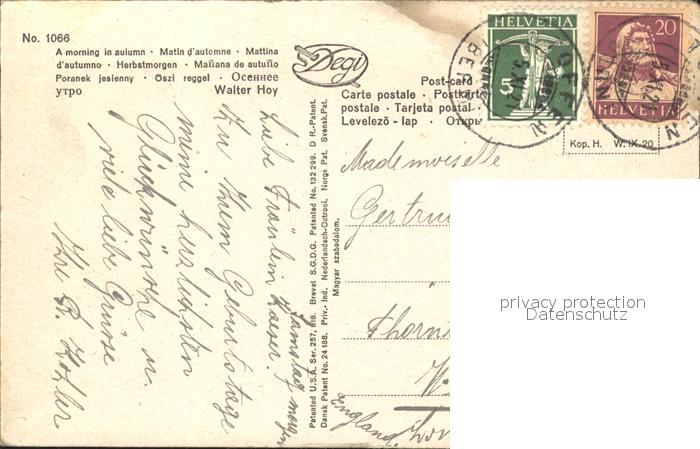 No. 1066
A morning in auiumn · Matin d'automne · Mattina
d'autumno · Herbstmorgen · Mañana de autuño
Poranek jesienny · Oszi reggel · Осеннее
утро
Walter Hoy
Degi
Post-card
Carte postale · Postkart
postale · Tarjeta postal ·
Levelezö - lap · Откры
HELVETIA
5
20
HELVETIA
Kop. H. W. IX. 20
Patented U.S.A. Ser. 257, 618. Brevet S.G.D.G. Patented No. 132 299. D R.-Patent.
Dansk Patent No. 24 188. Priv.- Ind. Nederlandsch-Octrooi. Norge Pat. Svensk. Pat.
Magyar szabadalom.
Samstag morgen
Liebe Fräulein Kaeser.
Zu Ihrem Geburtstage
meine herzlichsten
Glückwünsche u.
viele liebe Grüsse
Ihre B. Kohler
Mademoiselle
Gertru
Thorn
England
Lon
privacy protection
Datenschutz